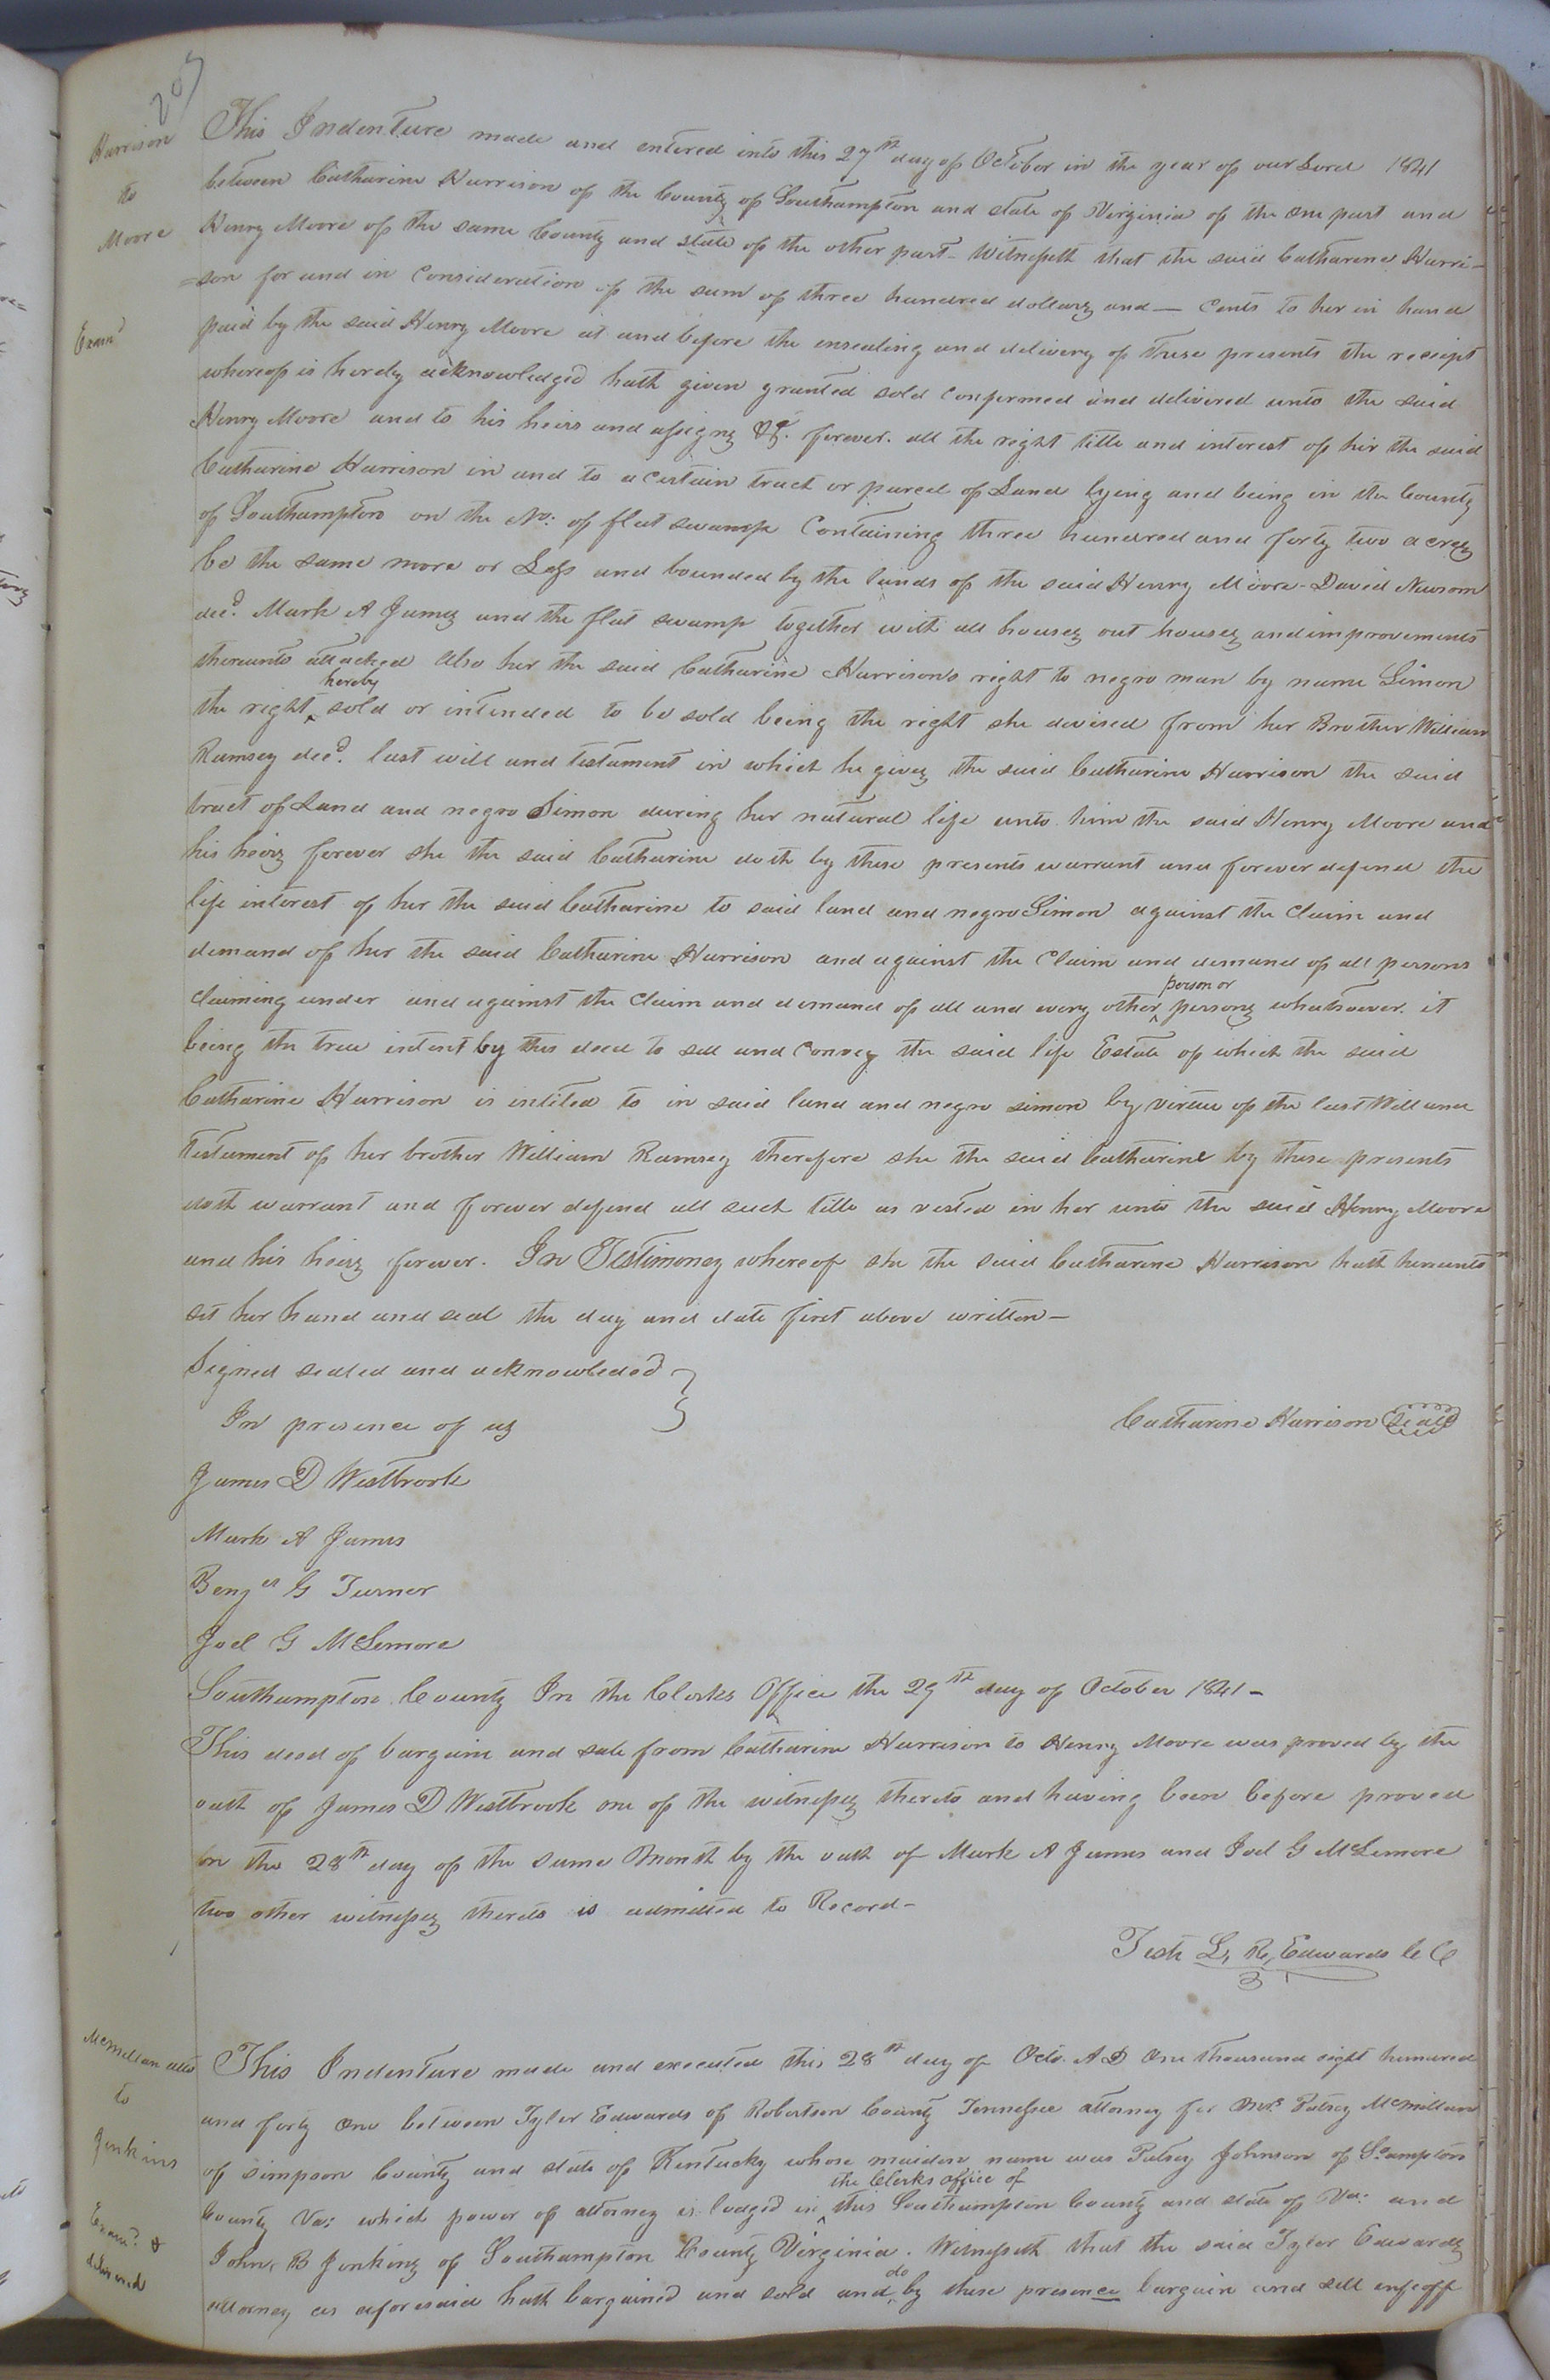 207
Harrison
to
Moore
Exam^d
This Indenture made and entered into this 27th day of October in the year of our Lord 1841
between Catharine Harrison of the County of Southampton and state of Virginia of the one part and
Henry Moore of the same County and state of the other part Witnesseth that the said Catharine Harri-
=son for and in Consideration of the sum of three hundred dollars and — Cents to her in hand
paid by the said Henry Moore at and before the ensealing and delivery of these presents the receipt
whereof is hereby acknowledged hath given granted sold confermed and delivered unto the said
Henry Moore and to his heirs and assigns &c. forever. all the right title and interest of her the said
Catharine Harrison in and to a certain tract or parcel of Land lying and being in the County
of Southampton on the No: of flat swamp Containing three hundred and forty two acres
be the same more or Less and bounded by the lands of the said Henry Moore - David Newsom
decd. Mark A James and the flat swamp together with all houses out houses and improvements
thereunto attached also her the said Catharine Harrisons right to negro man by name Simon
the right ^hereby sold or intended to be sold being the right she devised from her Brother William
Ramsey decd. last will and testament in which he gives the said Catharine Harrison the said
tract of Land and negro Simon during her natural life unto him the said Henry Moore and
his heirs forever she the said Catharine doth by these presents warrant and forever defend the
life interest of her the said Catharine to said land and negro Simon against the Claim and
demand of her the said Catharine Harrison and against the Claim and demand of all persons
Claiming under and against the Claim and demand of all and every other ^person or persons whatsoever. it
being the true intent by this deed to sell and Convey the said life Estate of which the said
Catharine Harrison is intitled to in said land and negro simon by virtue of the last Will and
testament of her brother William Ramsey therefore she the said Catharine by these presents
doth warrant and forever defend all such title as vested in her unto the said Henry Moore
and his heirs forever. In Testimoney whereof she the said Catharine Harrison hath hereunto
set her hand and seal the day and date first above written—
Signed sealed and acknowleded }
In presence of us
Catharine Harrison Seal
James D Westbrook
Mark A James
Benjn G Turner
Joel G McLemore
Southampton County In the Clerks Office the 29th day of October 1841-
This deed of bargain and sale from Catharine Harrison to Henry Moore was proved by the
oath of James D Westbrook one of the witnesses thereto and having been before proved
on the 28th day of the same Month by the oath of Mark A James and Joel G McLemore
two other witnesses thereto is admitted to Record-
Teste L. R. Edwards C C
McMillan atto
to
Jenkins
Examd. &
delivered
This Indenture made and executed this 28th day of Octo. AD One thousand eight hundred
and forty one between Tyler Edwards of Robertson County Tennessee attorney for Mrs Patsey McMillan
of simpson County and state of Kentucky whose maiden name was Patsey Johnson of So.ampton
County Va: which power of attorney is lodged in ^the Clerks office of this Southampton County and state of Va: and
John, B Jenkins of Southampton County Virginia. Witnesseth that the said Tyler Edwards
attorney as aforesaid hath bargained and sold and ^do by these presence bargain and sell enfeoff